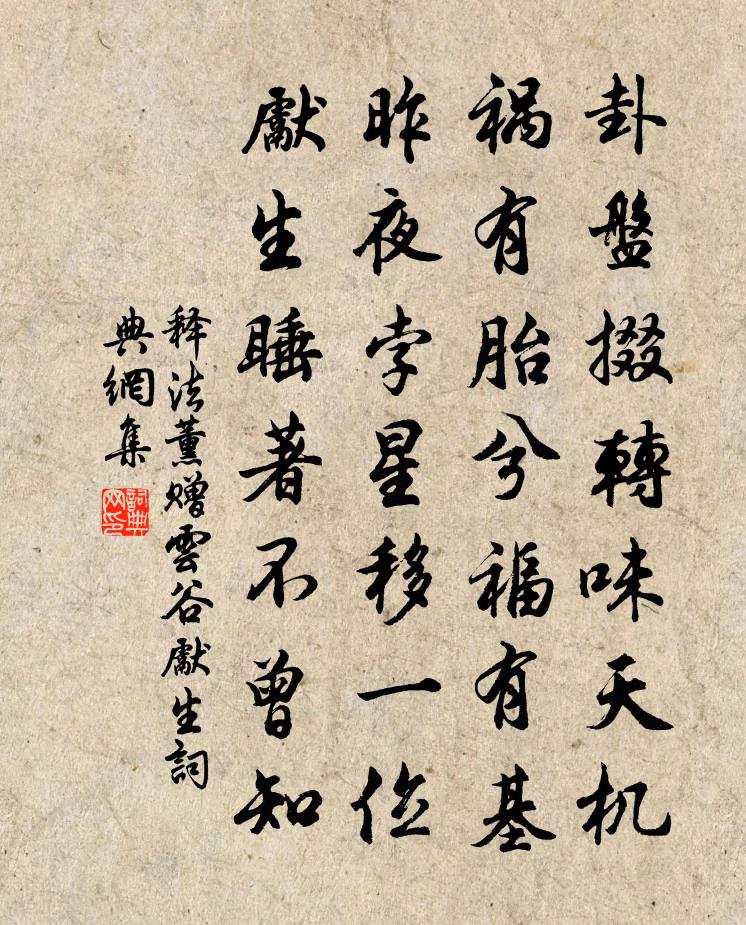 卦盤掇轉味天机
禍有胎兮福有基
昨夜孛星移一位
獻生睡著不曾知
释法薰赠雲谷獻生詞
典網集
詞典
网印